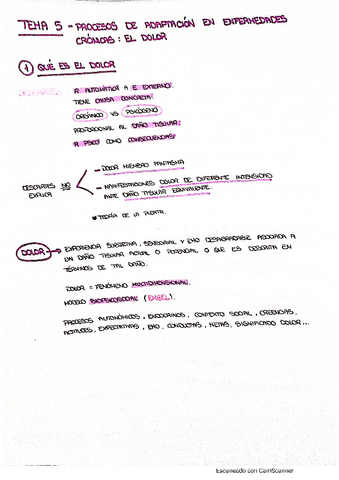 TEMA 5 - PROCESOS DE ADAPTACIÓN EN ENFERMEDADES
CRÓNICAS: EL DOLOR
1 QUÉ ES EL DOLOR
DESCARTES
R AUTOMÁTICA A E EXTERNO.
TIENE CAUSA CONCRETA.
ORGÁNICO VS PSICÓGENO
PROPORCIONAL AL DAÑO TISULAR.
R PSICO COMO CONSECUENCIAS.
DESCARTES NO
EXPLICA
- DOLOR MIEMBRO FANTASMA
- MANIFESTACIONES DOLOR DE DIFERENTE INTENSIDAD
ANTE DAÑO TISULAR EQUIVALENTE.
* TEORÍA DE LA PUERTA.
DOLOR → EXPERIENCIA SUBJETIVA, SENSORIAL Y EMO DESAGRADABLE ASOCIADA A
UN DAÑO TISULAR ACTUAL O POTENCIAL O QUE ES DESCRITA EN
TÉRMINOS DE TAL DAÑO.
DOLOR = FENÓMENO MULTIDIMENSIONAL.
MODELO BIOPSICOSOCIAL (ENGEL).
PROCESOS AUTONÓMICOS, ENDOCRINOS, CONTEXTO SOCIAL, CREENCIAS,
ACTITUDES, EXPECTATIVAS, EMO, CONDUCTAS, METAS, SIGNIFICADO DOLOR...
Escaneado con CamScanner